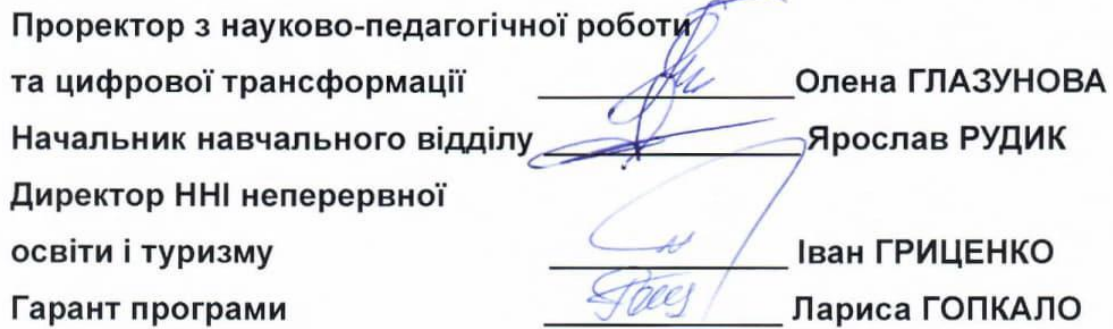 Проректор з науково-педагогічної роботи
та цифрової трансформації Олена ГЛАЗУНОВА
Начальник навчального відділу Ярослав РУДИК
Директор ННІ неперервної
освіти і туризму Іван ГРИЦЕНКО
Гарант програми Лариса ГОПКАЛО